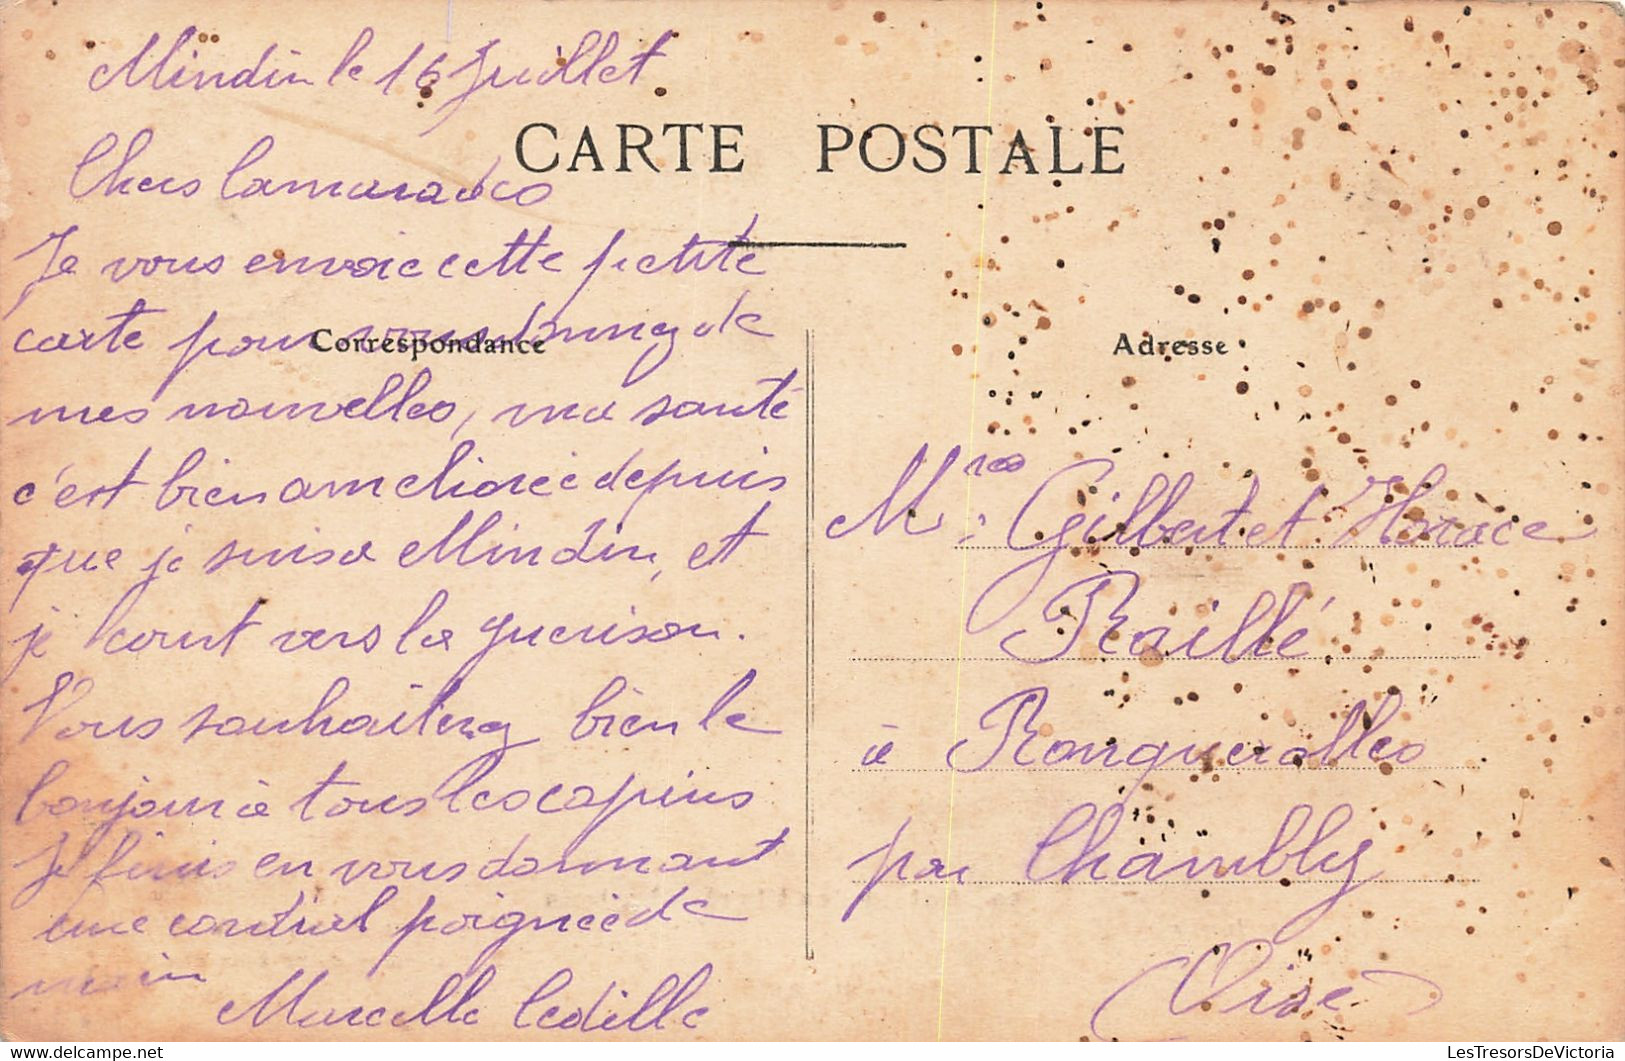 Mindin le 16 Juillet
CARTE POSTALE
Chers Camarades
Je vous envoie cette petite
carte pour vous donnez de
Correspondance
mes nouvelles, ma santé
c'est bien ameliorée depuis
que je suis a Mindin, et
je court vers la guerison.
Vous souhaitez bien le
bonjour à tous les copins
Je finis en vous donnant
une cordial poignée de
main
Marcelle Cedille
Adresse
Mrs Gilbert et Horace
Raillé
à Ronquerolles
par Chambly
(Oise)
LesTresorsDeVictoria